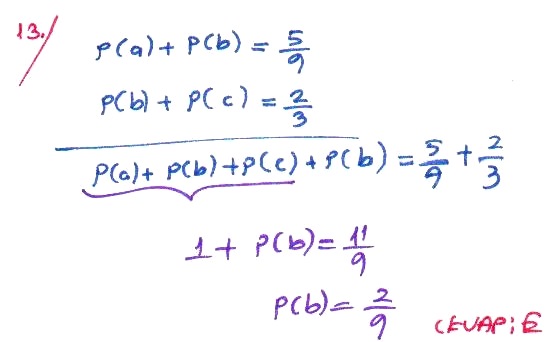 13./
P(a) + P(b) = 5/9
P(b) + P(c) = 2/3
P(a) + P(b) + P(c) + P(b) = 5/9 + 2/3
1 + P(b) = 11/9
P(b) = 2/9
CEVAP: E